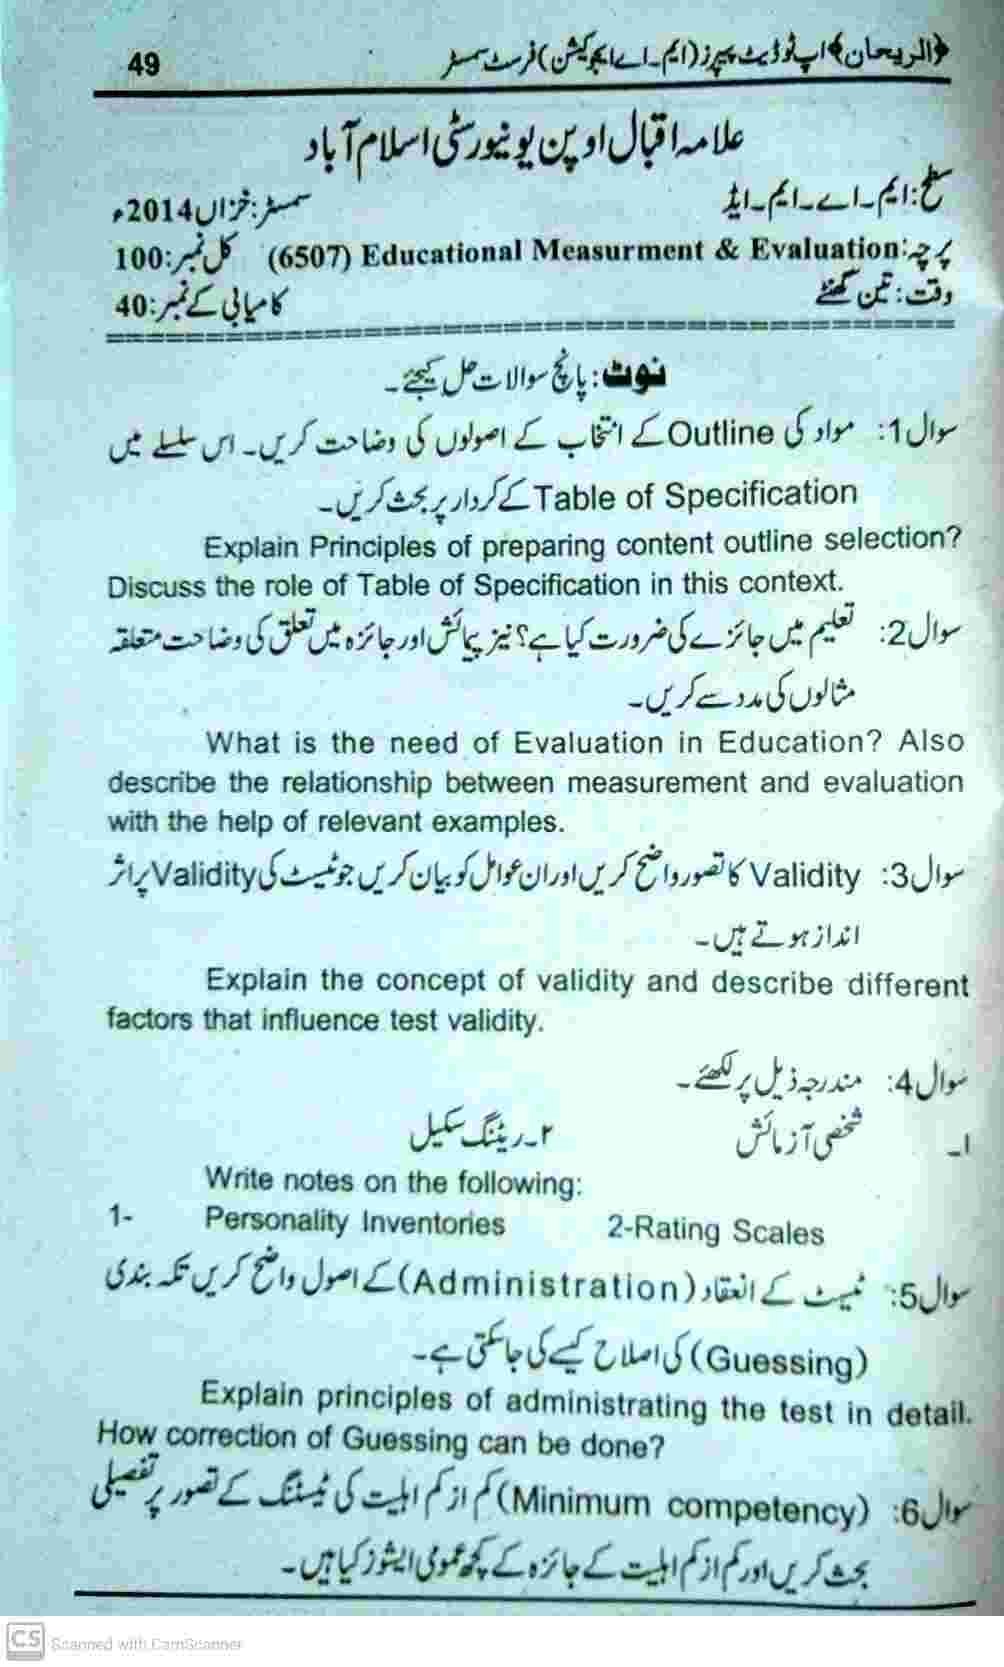 ﴿الریحان﴾ اپ ٹو ڈیٹ پیپرز (ایم۔اے ایجوکیشن) فرسٹ سمسٹر 49
علامہ اقبال اوپن یونیورسٹی اسلام آباد
سطح: ایم۔اے۔ایم۔ایڈ سمسٹر: خزاں 2014ء
پرچہ: (6507) Educational Measurment & Evaluation کل نمبر: 100
وقت: تین گھنٹے کامیابی کے نمبر: 40
نوٹ: پانچ سوالات حل کیجئے۔
سوال 1: مواد کی Outline کے انتخاب کے اصولوں کی وضاحت کریں۔ اس سلسلے میں
Table of Specification کے کردار پر بحث کریں۔
Explain Principles of preparing content outline selection?
Discuss the role of Table of Specification in this context.
سوال 2: تعلیم میں جائزے کی ضرورت کیا ہے؟ نیز پیمائش اور جائزہ میں تعلق کی وضاحت متعلقہ
مثالوں کی مدد سے کریں۔
What is the need of Evaluation in Education? Also
describe the relationship between measurement and evaluation
with the help of relevant examples.
سوال 3: Validity کا تصور واضح کریں اور ان عوامل کو بیان کریں جو ٹیسٹ کی Validity پر اثر
انداز ہوتے ہیں۔
Explain the concept of validity and describe different
factors that influence test validity.
سوال 4: مندرجہ ذیل پر لکھئے۔
۱۔ شخصی آزمائش ۲۔ ریٹنگ سکیل
Write notes on the following:
1- Personality Inventories 2-Rating Scales
سوال 5: ٹیسٹ کے انعقاد (Administration) کے اصول واضح کریں تکہ بندی
(Guessing) کی اصلاح کیسے کی جاسکتی ہے۔
Explain principles of administrating the test in detail.
How correction of Guessing can be done?
سوال 6: (Minimum competency) کم از کم اہلیت کی ٹیسٹنگ کے تصور پر تفصیلی
بحث کریں اور کم از کم اہلیت کے جائزہ کے کچھ عمومی ایشوز کیا ہیں۔
CS Scanned with CamScanner